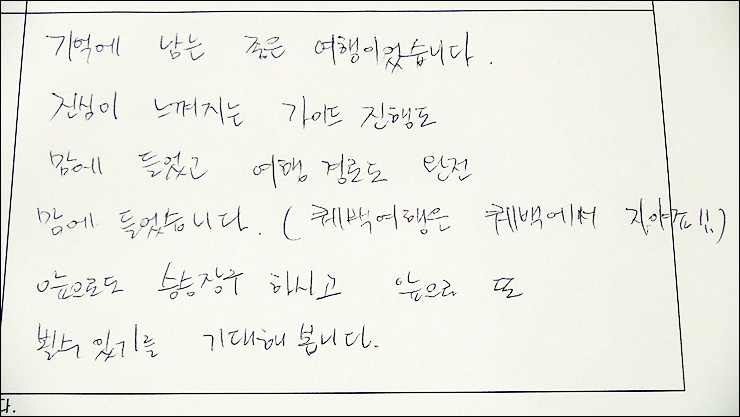 기억에 남는 좋은 여행이었습니다.
진심이 느껴지는 가이드 진행도
맘에 들었고 여행 경로도 완전
맘에 들었습니다. (퀘백여행은 퀘백에서 자야죠!!)
앞으로도 승승장구 하시고 앞으로 또
뵐수 있기를 기대해 봅니다.
다.